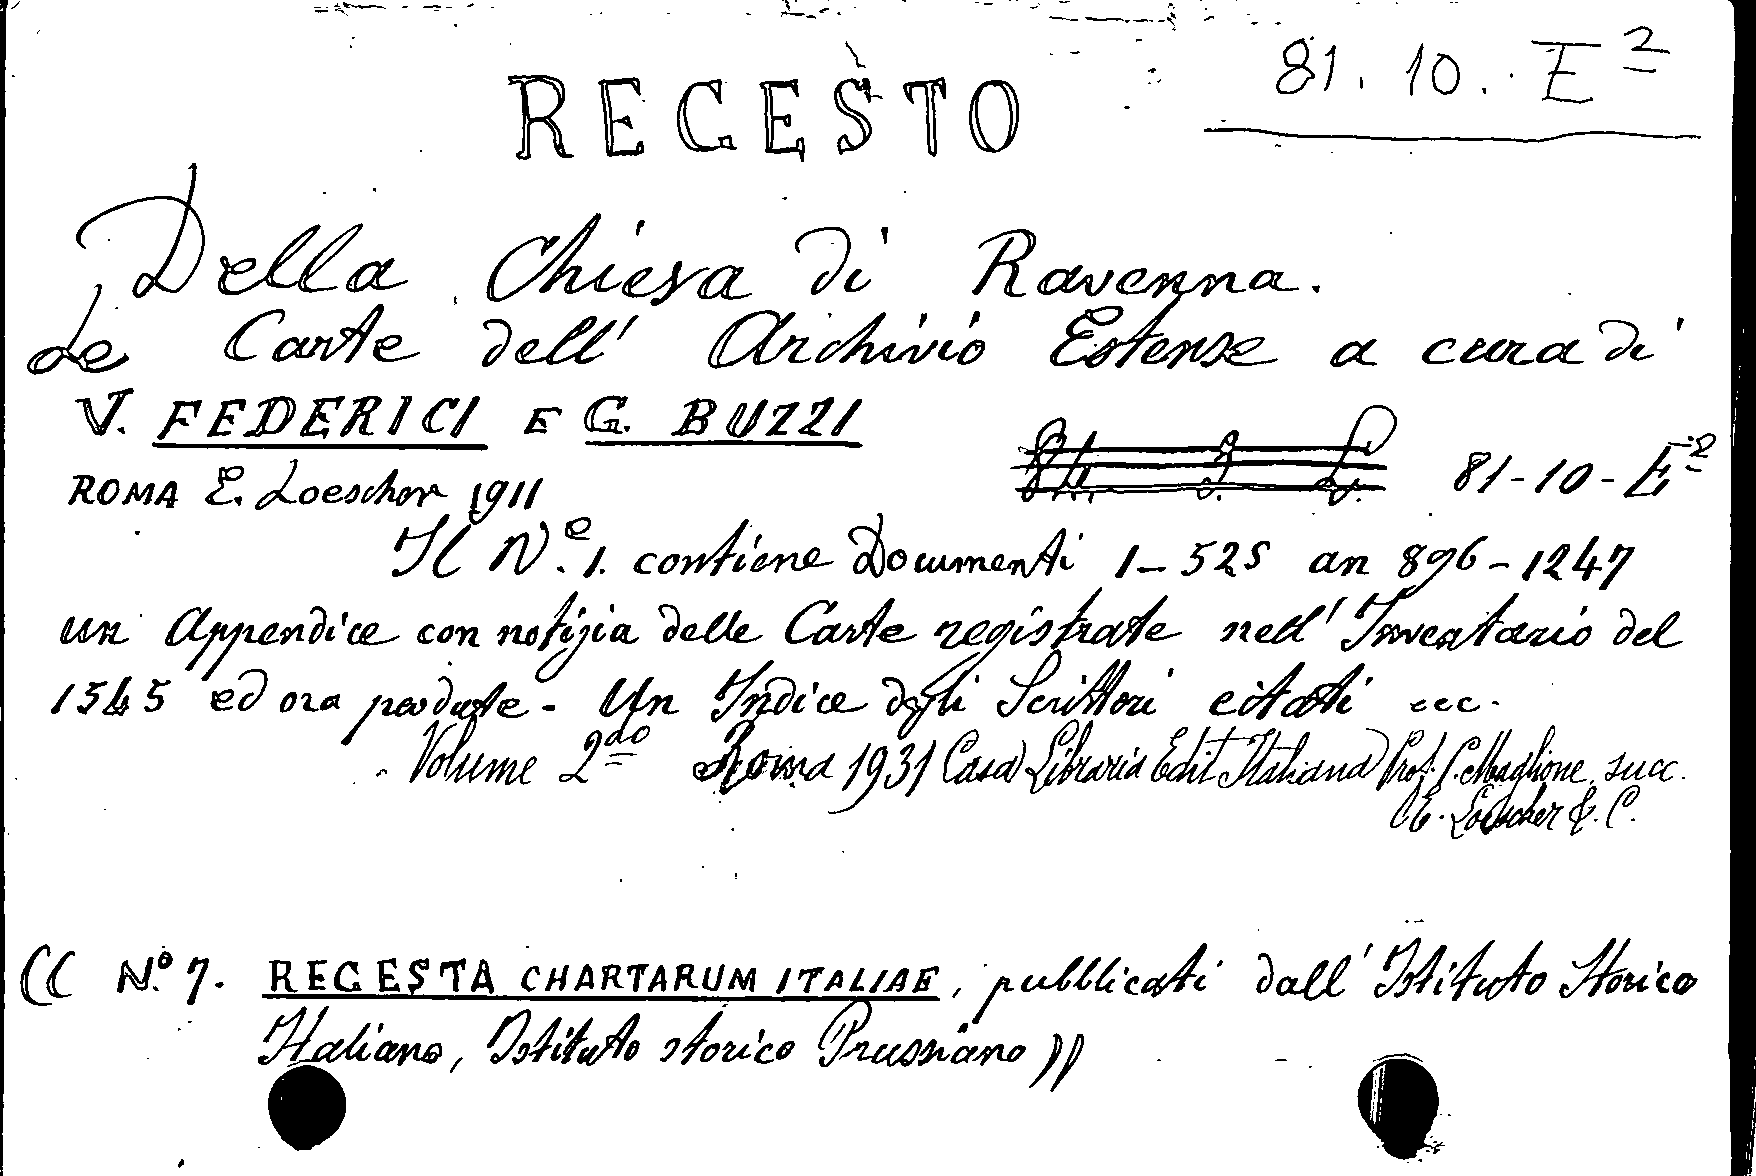 81. 10. E²
REGESTO
Della Chiesa di Ravenna.
Le Carte dell' Archivio Estense a cura di
V. FEDERICI E G. BUZZI
ROMA E. Loescher 1911 81-10-E²
Il N.º 1. contiene Documenti 1-525 an 896-1247
un Appendice con notizia delle Carte registrate nell' Inventario del
1545 ed ora perdute - Un Indice degli Scrittori citati ecc.
Volume 2do Roma 1931 Casa Libraria Edit Italiana Prof. P. Maglione, succ.
E. Loescher & C.
(( N.º 7. REGESTA CHARTARUM ITALIAE, pubblicati dall' Istituto Storico
Italiano, Istituto storico Prussiano ))